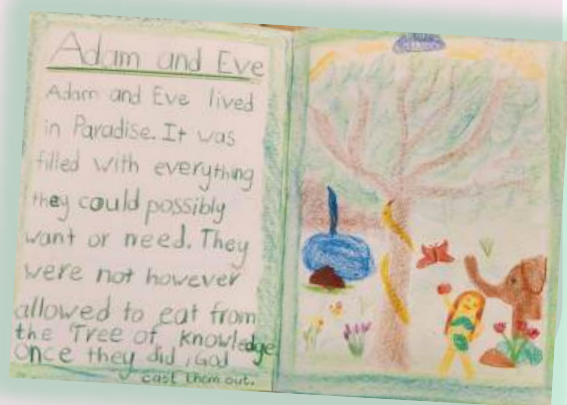 Adam and Eve
Adam and Eve lived
in Paradise. It was
filled with everything
they could possibly
want or need. They
were not however
allowed to eat from
the Tree of knowledge
Once they did, God
cast them out.